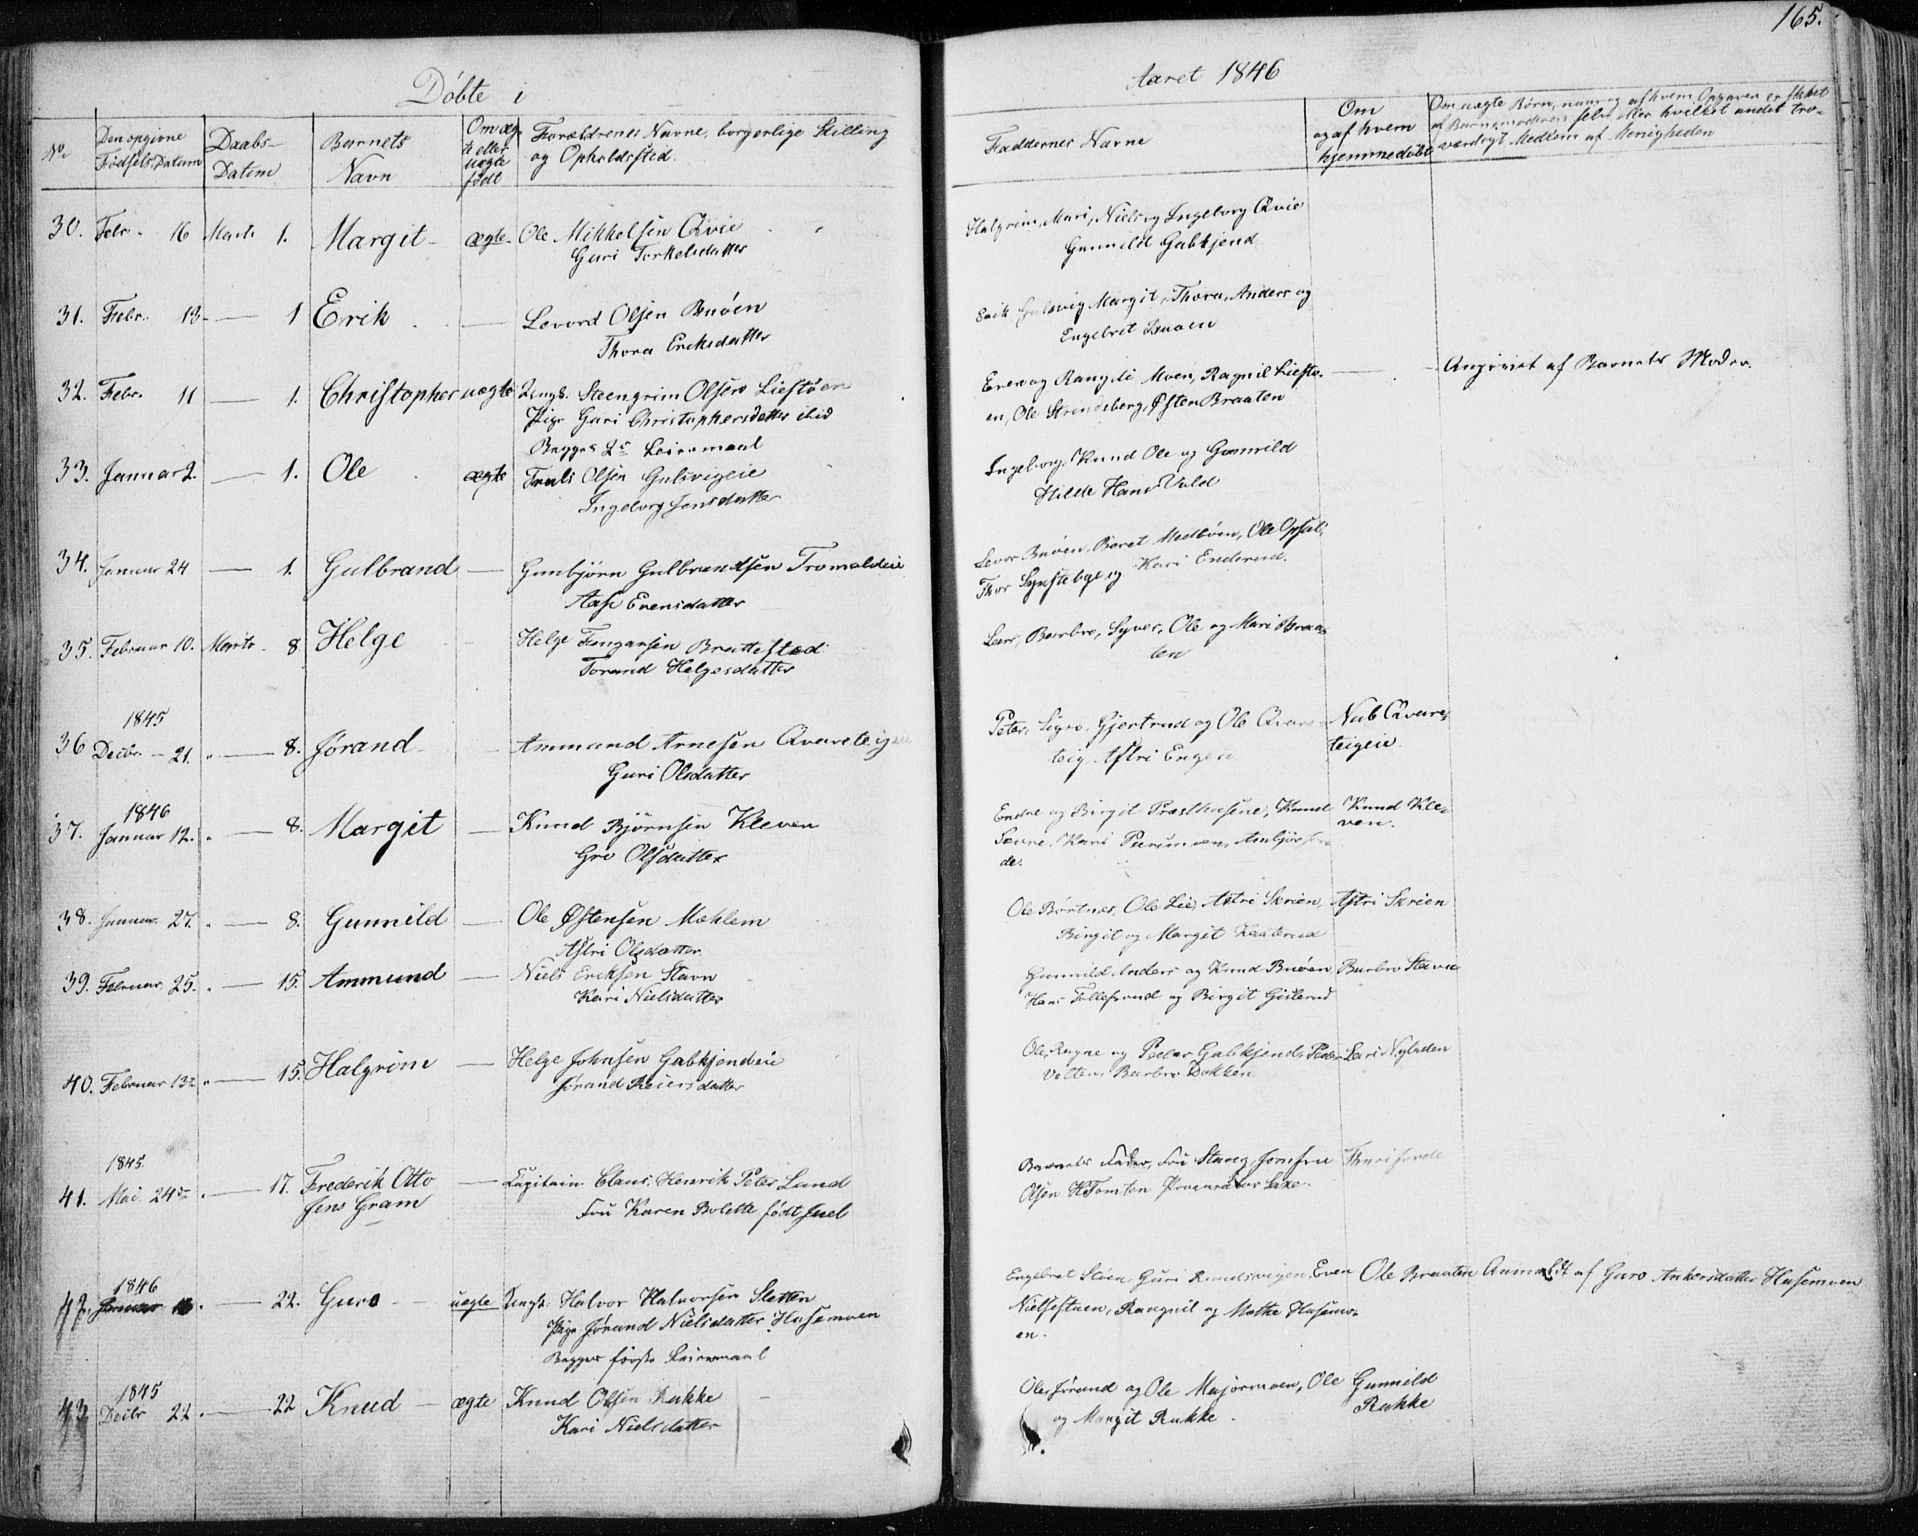 165.
Døbte i
Aaret 1846
No
Den opgivne Fødsels Datum
Daabs-Datum
Barnets Navn
Om ægte eller uægte født
Forældrenes Navne, borgerlige Stilling og Opholdssted.
Faddernes Navne
Om og af hvem hjemmedøbt
Om uægte Børn, naar og af hvem Opgaven er skeet af Barnemoderen selv eller hvilket andet troværdigt Medlem af Menigheden
30. Febr. 16 Marts 1. Margit ægte Ole Mikkelsen Qvie
Guri Torkelsdatter
Halgrim, Mari, Niels og Ingeborg Qvie
Gunnild Gabkjend
31. Febr. 13 — 1 Erik — Levord Olsen Bruøen
Thora Eriksdatter
Erik Gulsvig Margit, Thora, Anders og
Engebret Bruøen
32. Febr. 11 — 1. Christopher uægte Ungk. Steengrim Olsen Liestøen
Pige Guri Christophersdatter ibid
Begges 2det Leiermaal
Even og Rangdi Moen, Ragnil Liestø-
en, Ole Strandberg, Østen Braaten
Angivet af Barnets Moder
33. Januar 2. — 1. Ole ægte Truls Olsen Gulsvigeie
Ingeborg Jensdatter
Ingeborg, Knud Ole og Gunnild
Hilde Hans Vold
34. Januar 24 — 1. Gulbrand — Gunbjørn Gulbrandsen Tromaldeie
Aase Evensdatter
Levor Bruøen, Beret Medbøen, Ole Opsal,
Thor og Kari Enderud.
35. Februar 10. Marts 8 Helge Helge Brattestad
Torand Helgesdatter
Lars, Barbro, Syver, Ole og Mari Braa-
ten
1845
36 Decbr. 21. — 8. Jørand Ammund Arnesen Qvarteig
Guri Olsdatter
Peter, Sigre, Gjertrud og Ole Qvar-
teig. Astri Engen
Nub Qvare,
teigeie.
1846
37. Januar 12. — 8. Margit — Knud Bjørnsen Kleven
Gro Olsdatter
Endre og Birgit Præsthusene, Knud
Sevre, Kari
de.
Knud Kle-
ven.
38. Januar 27. — 8. Gunnild — Ole Østensen Mæhlem
Astri Olsdatter
Ole Børtnes, Ole Lie, Astri Skrien
Birgit og Margit
Astri Skrien
39. Februar 25. — 15. Ammund — Niels Eriksen Stavn
Kari Nielsdatter
Gunnild Anders og Knud Bruøen
Hans Tollefsrud og Birgit Gislerud
Barbro Stavn
40. Februar 13 — 15. Halgrim — Helge Johnsen Gabkjendeie
Jørand Reiersdatter
Ole, Ragne og Peder Gabkjend, Peder
Votten, Barbro Dokken
1845.
41. Mai 24de — 17. Frederik Otto
Jens Gram
Capitain Claus Henrik Peter Lund
Fru Karen Bolette født Juel
Barnets Fader, Fru Stang, Jomfru
Olsen H. Tomten Provena
1846
42. Januar — 22. Guro uægte Ungk. Halvor Halvorsen Sletten
Pige Jørand Nielsdatter Husemoen
Begges første Leiermaal
Engebret Støen, Guri, Even
Nielsestuen, Rangnil og Mathe Husemo-
en.
Ole Braaten
Anmeldt af Guro Ankersdatter Husemoen
1845
43 Decbr 22. — 22 Knud ægte Knud Olsen Rukke
Kari Nielsdatter
Ole, Jørand og Ole Majormoen, Ole
og Margit Rukke.
Gunnild
Rukke